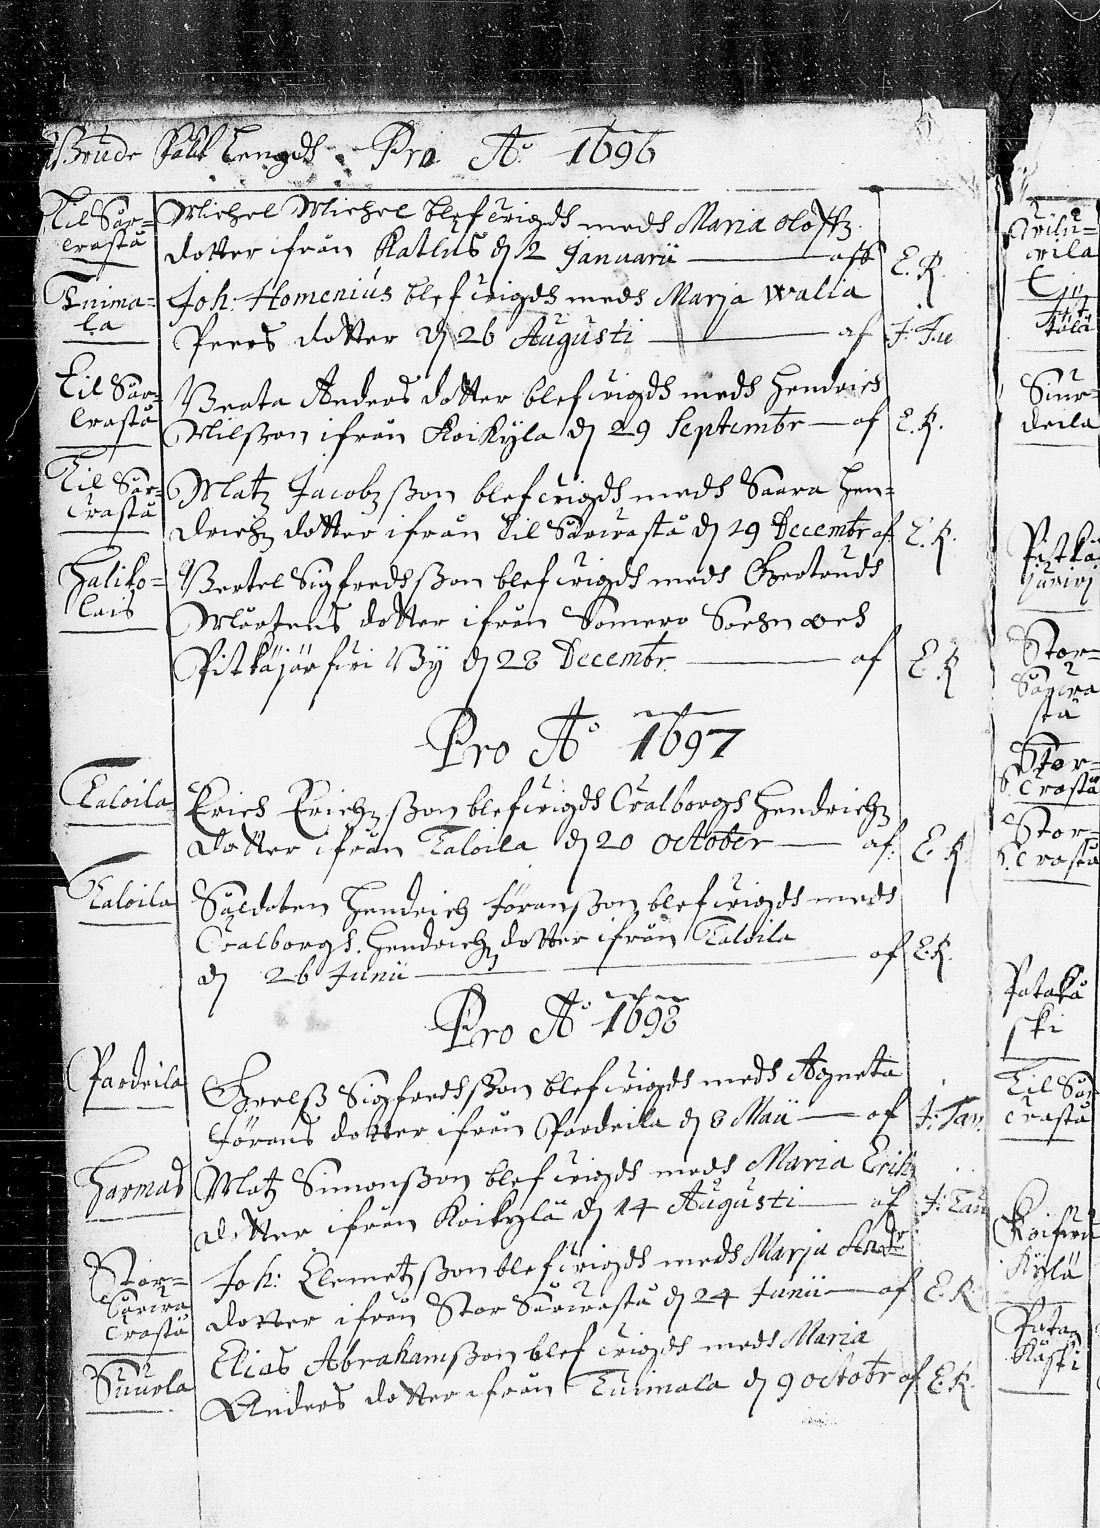 Brude Folk Lengdh. Pro A:o 1696
Til Sar=
crasta
Michel Michel blef wigdh medh Maria Oloffz
dotter ifrån Katlus d 2 Januarii — aff E. K.
Tuima=
la
Joh: Homenius blef wigdh medh Marja Walia
Peers dotter d 26 Augusti — af J: Tau
Lil Sar=
crasta
Beata Anders dotter blef wigdh medh Hendrich
Nilsson ifrån Koikyla d 29 Septembr — af E. K.
Lil Sar=
crasta
Matz Jacobzson blef wigdh medh Saara Hen=
drichz dotter ifrån Lil Sarcrasta d 29 Decembr af E. K.
Haliko=
lais
Bertel Sigfredhsson blef wigdh medh Gertrudh
Mårtens dotter ifrån Somero Sochn och
Pitkäjärfwi By d 28 Decembr. — af E. K
Pro A:o 1697
Taloila
Erich Erichzson blef wigdh Walborgh Hendrichz
dotter ifrån Taloila d 20 October — af: E. K
Taloila
Saldaten Hendrich Jöransson blef wigdh medh
Walborgh. Hendrichz dotter ifrån Taloila
d 26 Junii — af E. K.
Pro A:o 1698
Pardeila
Grelss Sigfredhsson blef wigdh medh Agneta
Jörans dotter ifrån Pardeila d 8 Maii — af J: Tau.
Harmas
Matz Simonsson blef wigdh medh Maria Erichz
dotter ifrån Koikylä d 14 Augusti — af J: Tau
Stor=
Sarcra
crasta
Joh: Clemetzson blef wigdh medh Marja Andr
dotter ifrån Stor Sarcrasta d 24 Junii — af E. K.
Suurla
Elias Abrahamsson blef wigdh medh Maria
Anders dotter ifrån Tuimala d 9 Octobr af E. K.
tola
Suur=
deila
Pitkä
järwi
Stor=
Sarcra
sta
Stor=
S. crasta
Stor=
S. crasta
Pataka
ski
Lil Sar
crasta
Koifwu
Kylä
Pata
Kaski